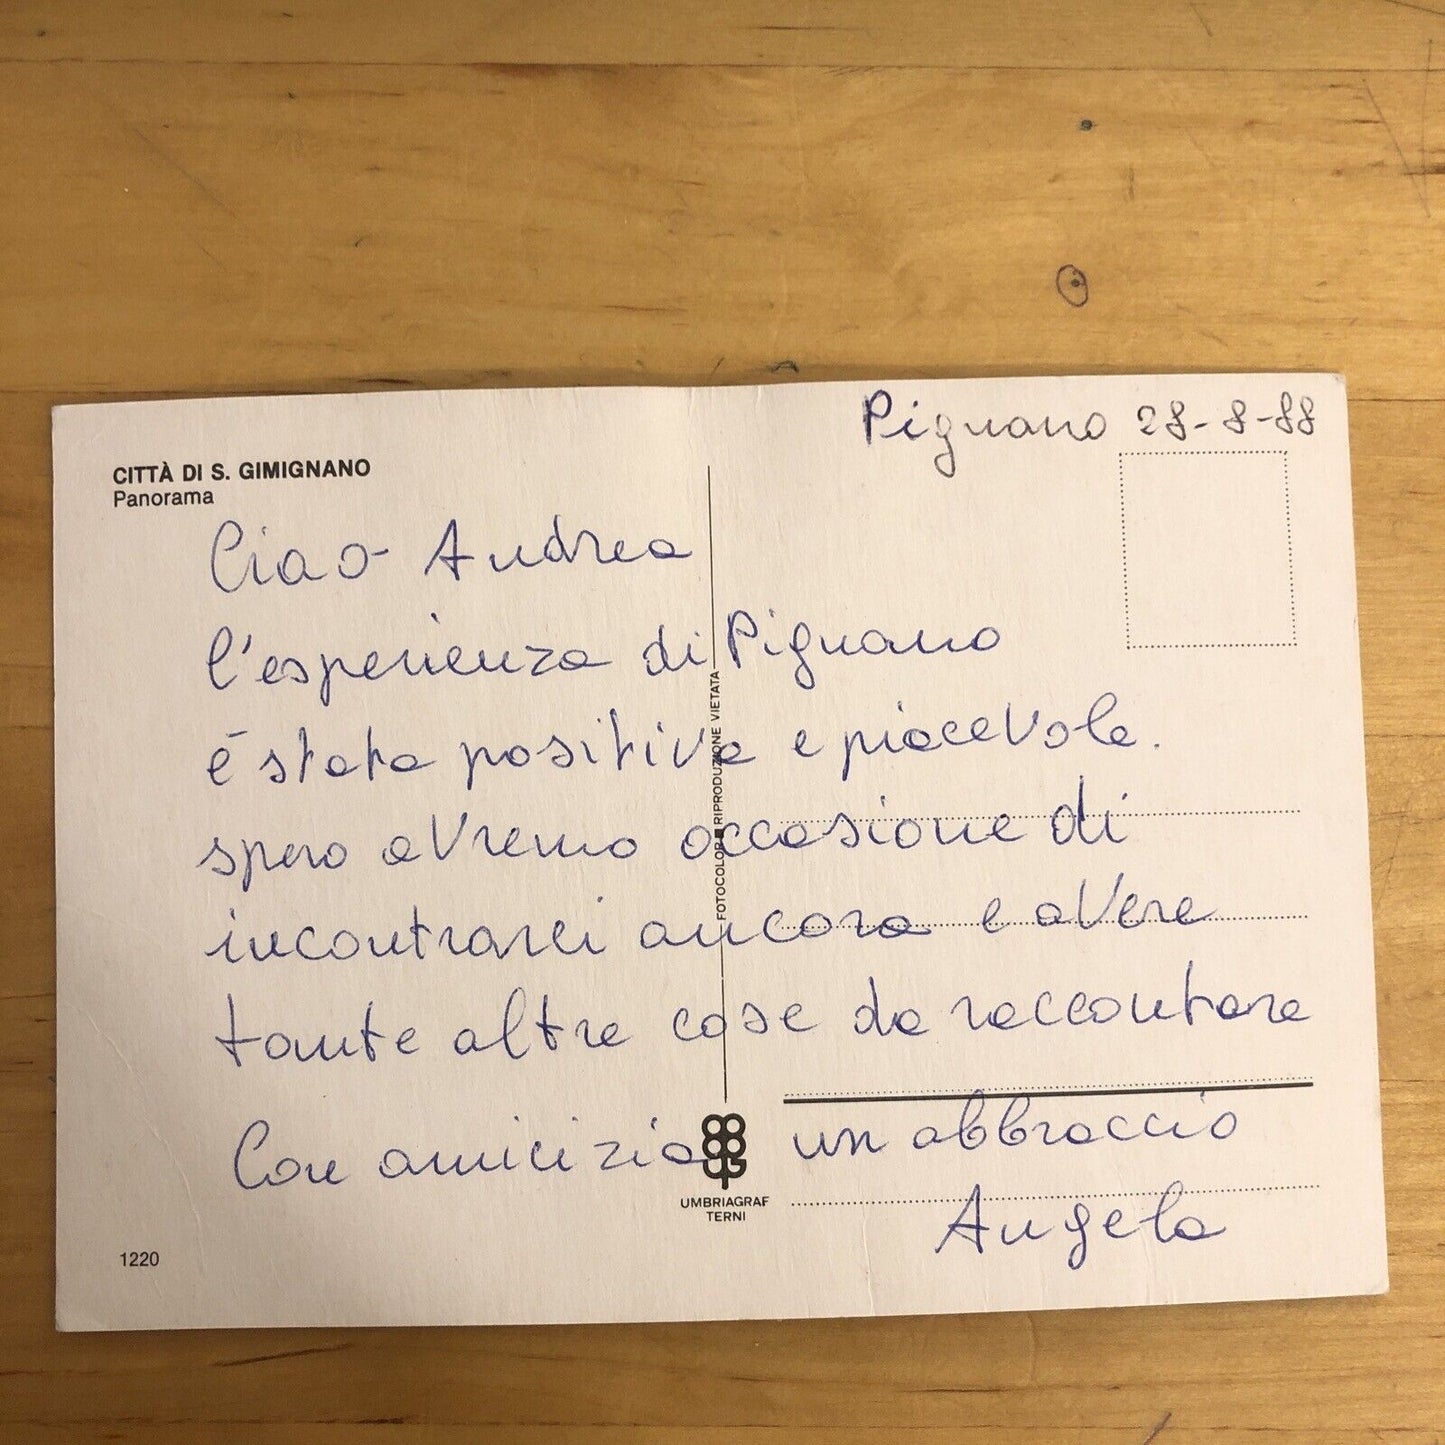 Pignano 28-8-88
CITTÀ DI S. GIMIGNANO
Panorama
Ciao Andrea
l'esperienza di Pignano
é stata positiva e piacevole.
spero avremo occasione di
incontrarci ancora e avere
tante altre cose da raccontare
Con amicizia un abbraccio
Angela
FOTOCOLOR RIPRODUZIONE VIETATA
UMBRIAGRAF
TERNI
1220